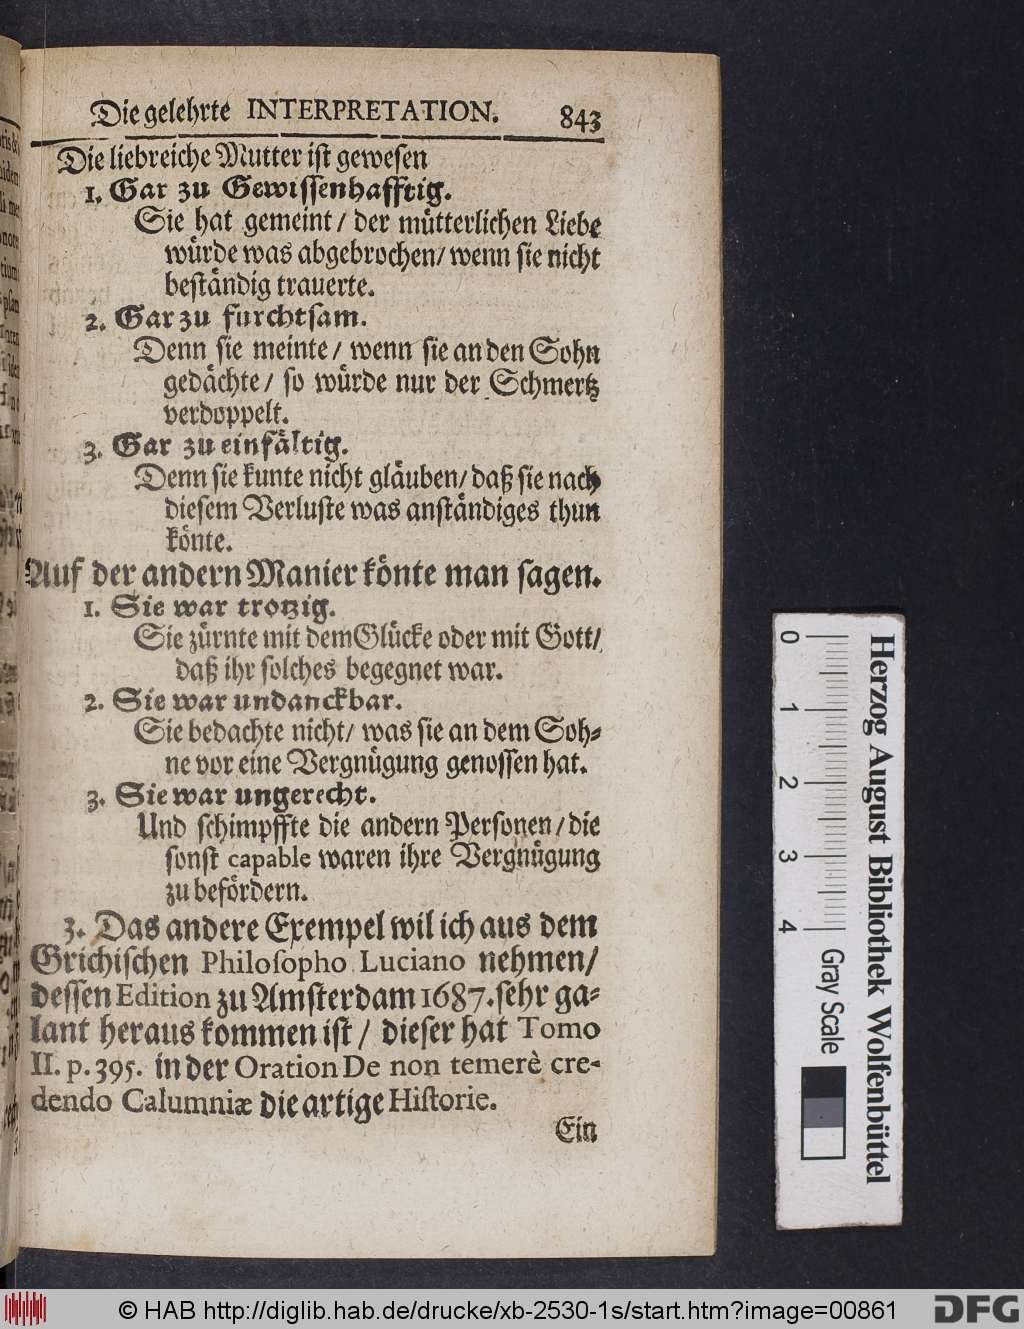 Die gelehrte INTERPRETATION. 843
Die liebreiche Mutter ist gewesen
1. Gar zu Gewissenhafftig.
Sie hat gemeint / der mütterlichen Liebe
würde was abgebrochen / wenn sie nicht
beständig trauerte.
2. Gar zu furchtsam.
Denn sie meinte / wenn sie an den Sohn
gedächte / so würde nur der Schmertz
verdoppelt.
3. Gar zu einfältig.
Denn sie kunte nicht gläuben / daß sie nach
diesem Verluste was anständiges thun
könte.
Auf der andern Manier könte man sagen.
1. Sie war trotzig.
Sie zürnte mit dem Glücke oder mit Gott /
daß ihr solches begegnet war.
2. Sie war undanckbar.
Sie bedachte nicht / was sie an dem Soh-
ne vor eine Vergnügung genossen hat.
3. Sie war ungerecht.
Und schimpffte die andern Personen / die
sonst capable waren ihre Vergnügung
zu befördern.
3. Das andere Exempel wil ich aus dem
Grichischen Philosopho Luciano nehmen /
dessen Edition zu Amsterdam 1687. sehr ga-
lant heraus kommen ist / dieser hat Tomo
II. p. 395. in der Oration De non temerè cre-
dendo Calumniæ die artige Historie.
Ein
0 1 2 3 4
Gray Scale
Herzog August Bibliothek Wolfenbüttel
© HAB http://diglib.hab.de/drucke/xb-2530-1s/start.htm?image=00861
DFG